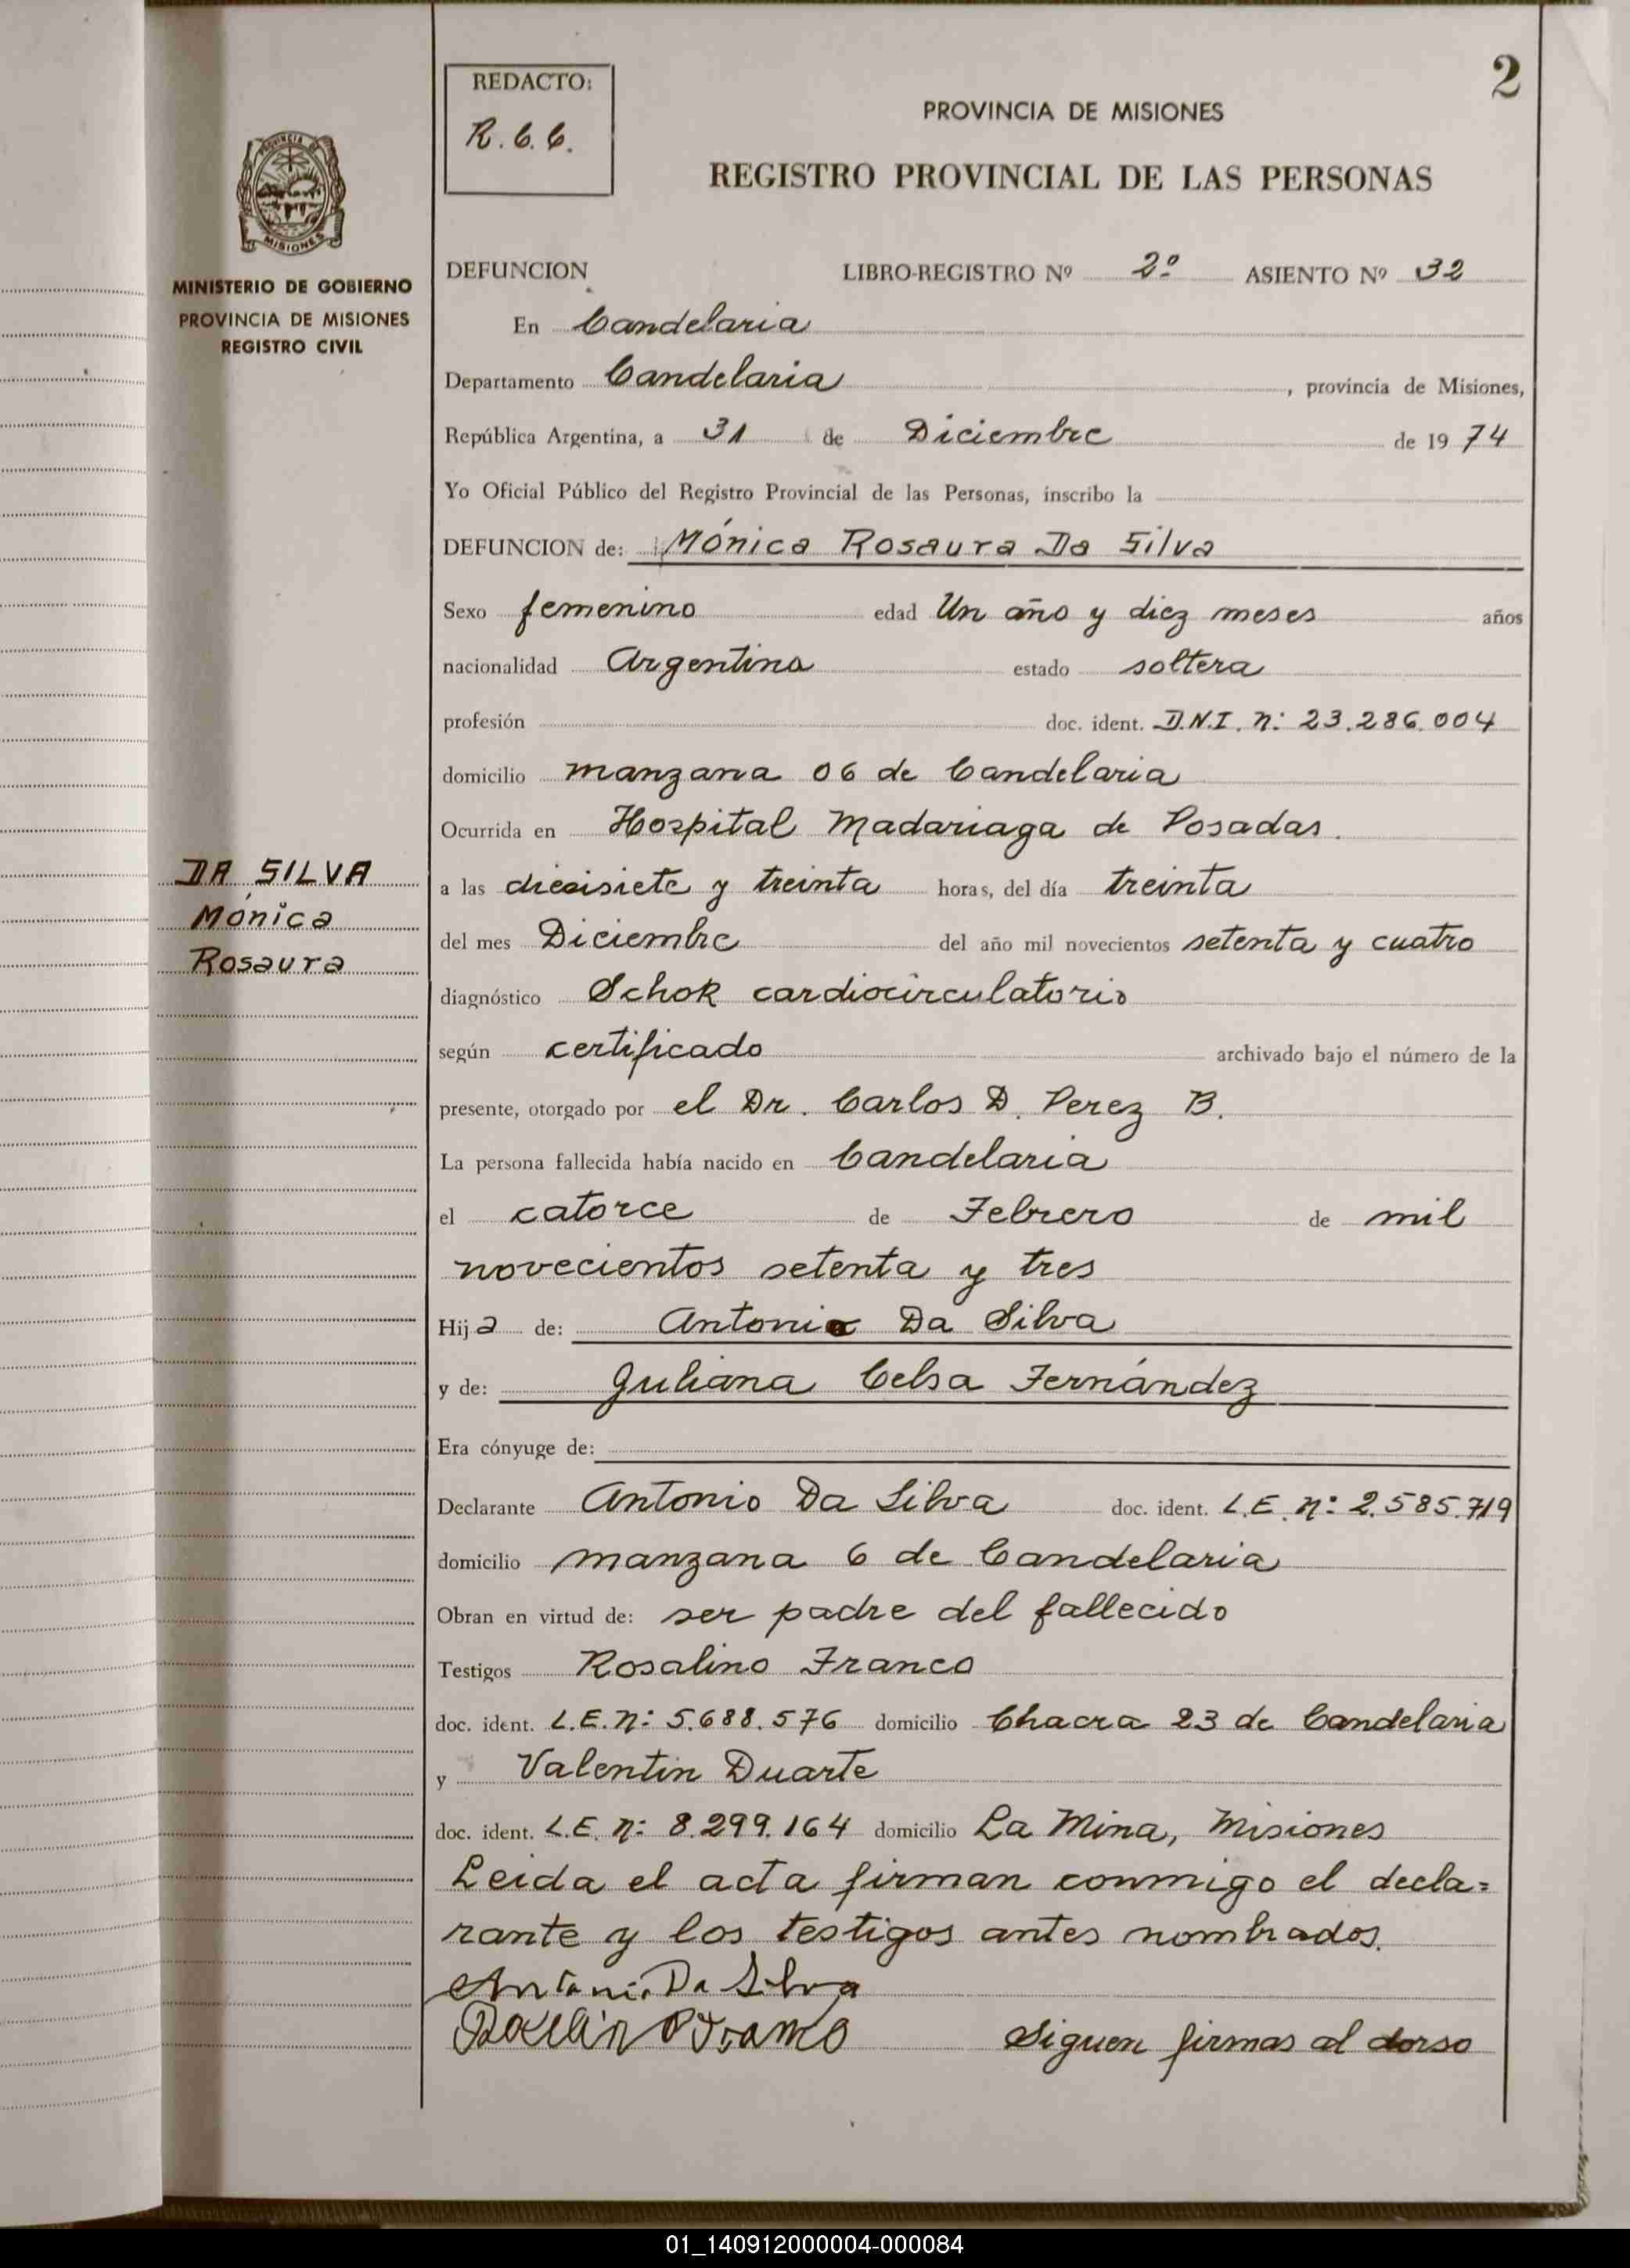 2
REDACTO:
R. C. C.
PROVINCIA DE MISIONES
REGISTRO PROVINCIAL DE LAS PERSONAS
PROVINCIA DE
MISIONES
MINISTERIO DE GOBIERNO
PROVINCIA DE MISIONES
REGISTRO CIVIL
DEFUNCION LIBRO-REGISTRO Nº 2º ASIENTO Nº 32
En Candelaria
Departamento Candelaria, provincia de Misiones,
República Argentina, a 31 de Diciembre de 1974
Yo Oficial Público del Registro Provincial de las Personas, inscribo la
DEFUNCION de: Mónica Rosaura Da Silva
Sexo femenino edad Un año y diez meses años
nacionalidad Argentina estado soltera
profesión doc. ident. D.N.I. n: 23.286.004
domicilio manzana 06 de Candelaria
Ocurrida en Hospital Madariaga de Posadas.
DA SILVA
Mónica
Rosaura
a las diecisiete y treinta horas, del día treinta
del mes Diciembre del año mil novecientos setenta y cuatro
diagnóstico Schok cardiocirculatorio
según certificado archivado bajo el número de la
presente, otorgado por el Dr. Carlos D. Perez B.
La persona fallecida había nacido en Candelaria
el catorce de Febrero de mil
novecientos setenta y tres
Hija de: Antonio Da Silva
y de: Juliana Celsa Fernández
Era cónyuge de:
Declarante Antonio Da Silva doc. ident. L.E. n: 2.585.719
domicilio manzana 6 de Candelaria
Obran en virtud de: ser padre del fallecido
Testigos Rosalino Franco
doc. ident. L.E. n: 5.688.576 domicilio Chacra 23 de Candelaria
y Valentin Duarte
doc. ident. L.E. n: 8.299.164 domicilio La Mina, Misiones
Leida el acta firman conmigo el decla=
rante y los testigos antes nombrados.
Antonio Da Silva
Siguen firmas al dorso
01_140912000004-000084